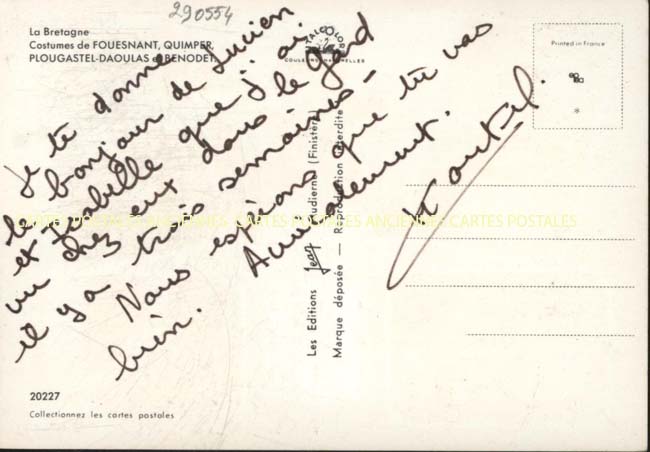 290554
La Bretagne
Costumes de FOUESNANT, QUIMPER,
PLOUGASTEL-DAOULAS et BENODET.
Je te donne
le bonjour de Lucien
et Isabelle que j'ai
vu chez eux dans le Gard
il y a trois semaines -
Nous espérons que tu vas
bien. Amicalement.
COULEURS NATURELLES
Printed in France
Les Editions Jean Audierne (Finistère)
Marque déposée — Reproduction interdite
CARTES POSTALES ANCIENNES CARTES POSTALES ANCIENNES CARTES POSTALES
20227
Collectionnez les cartes postales